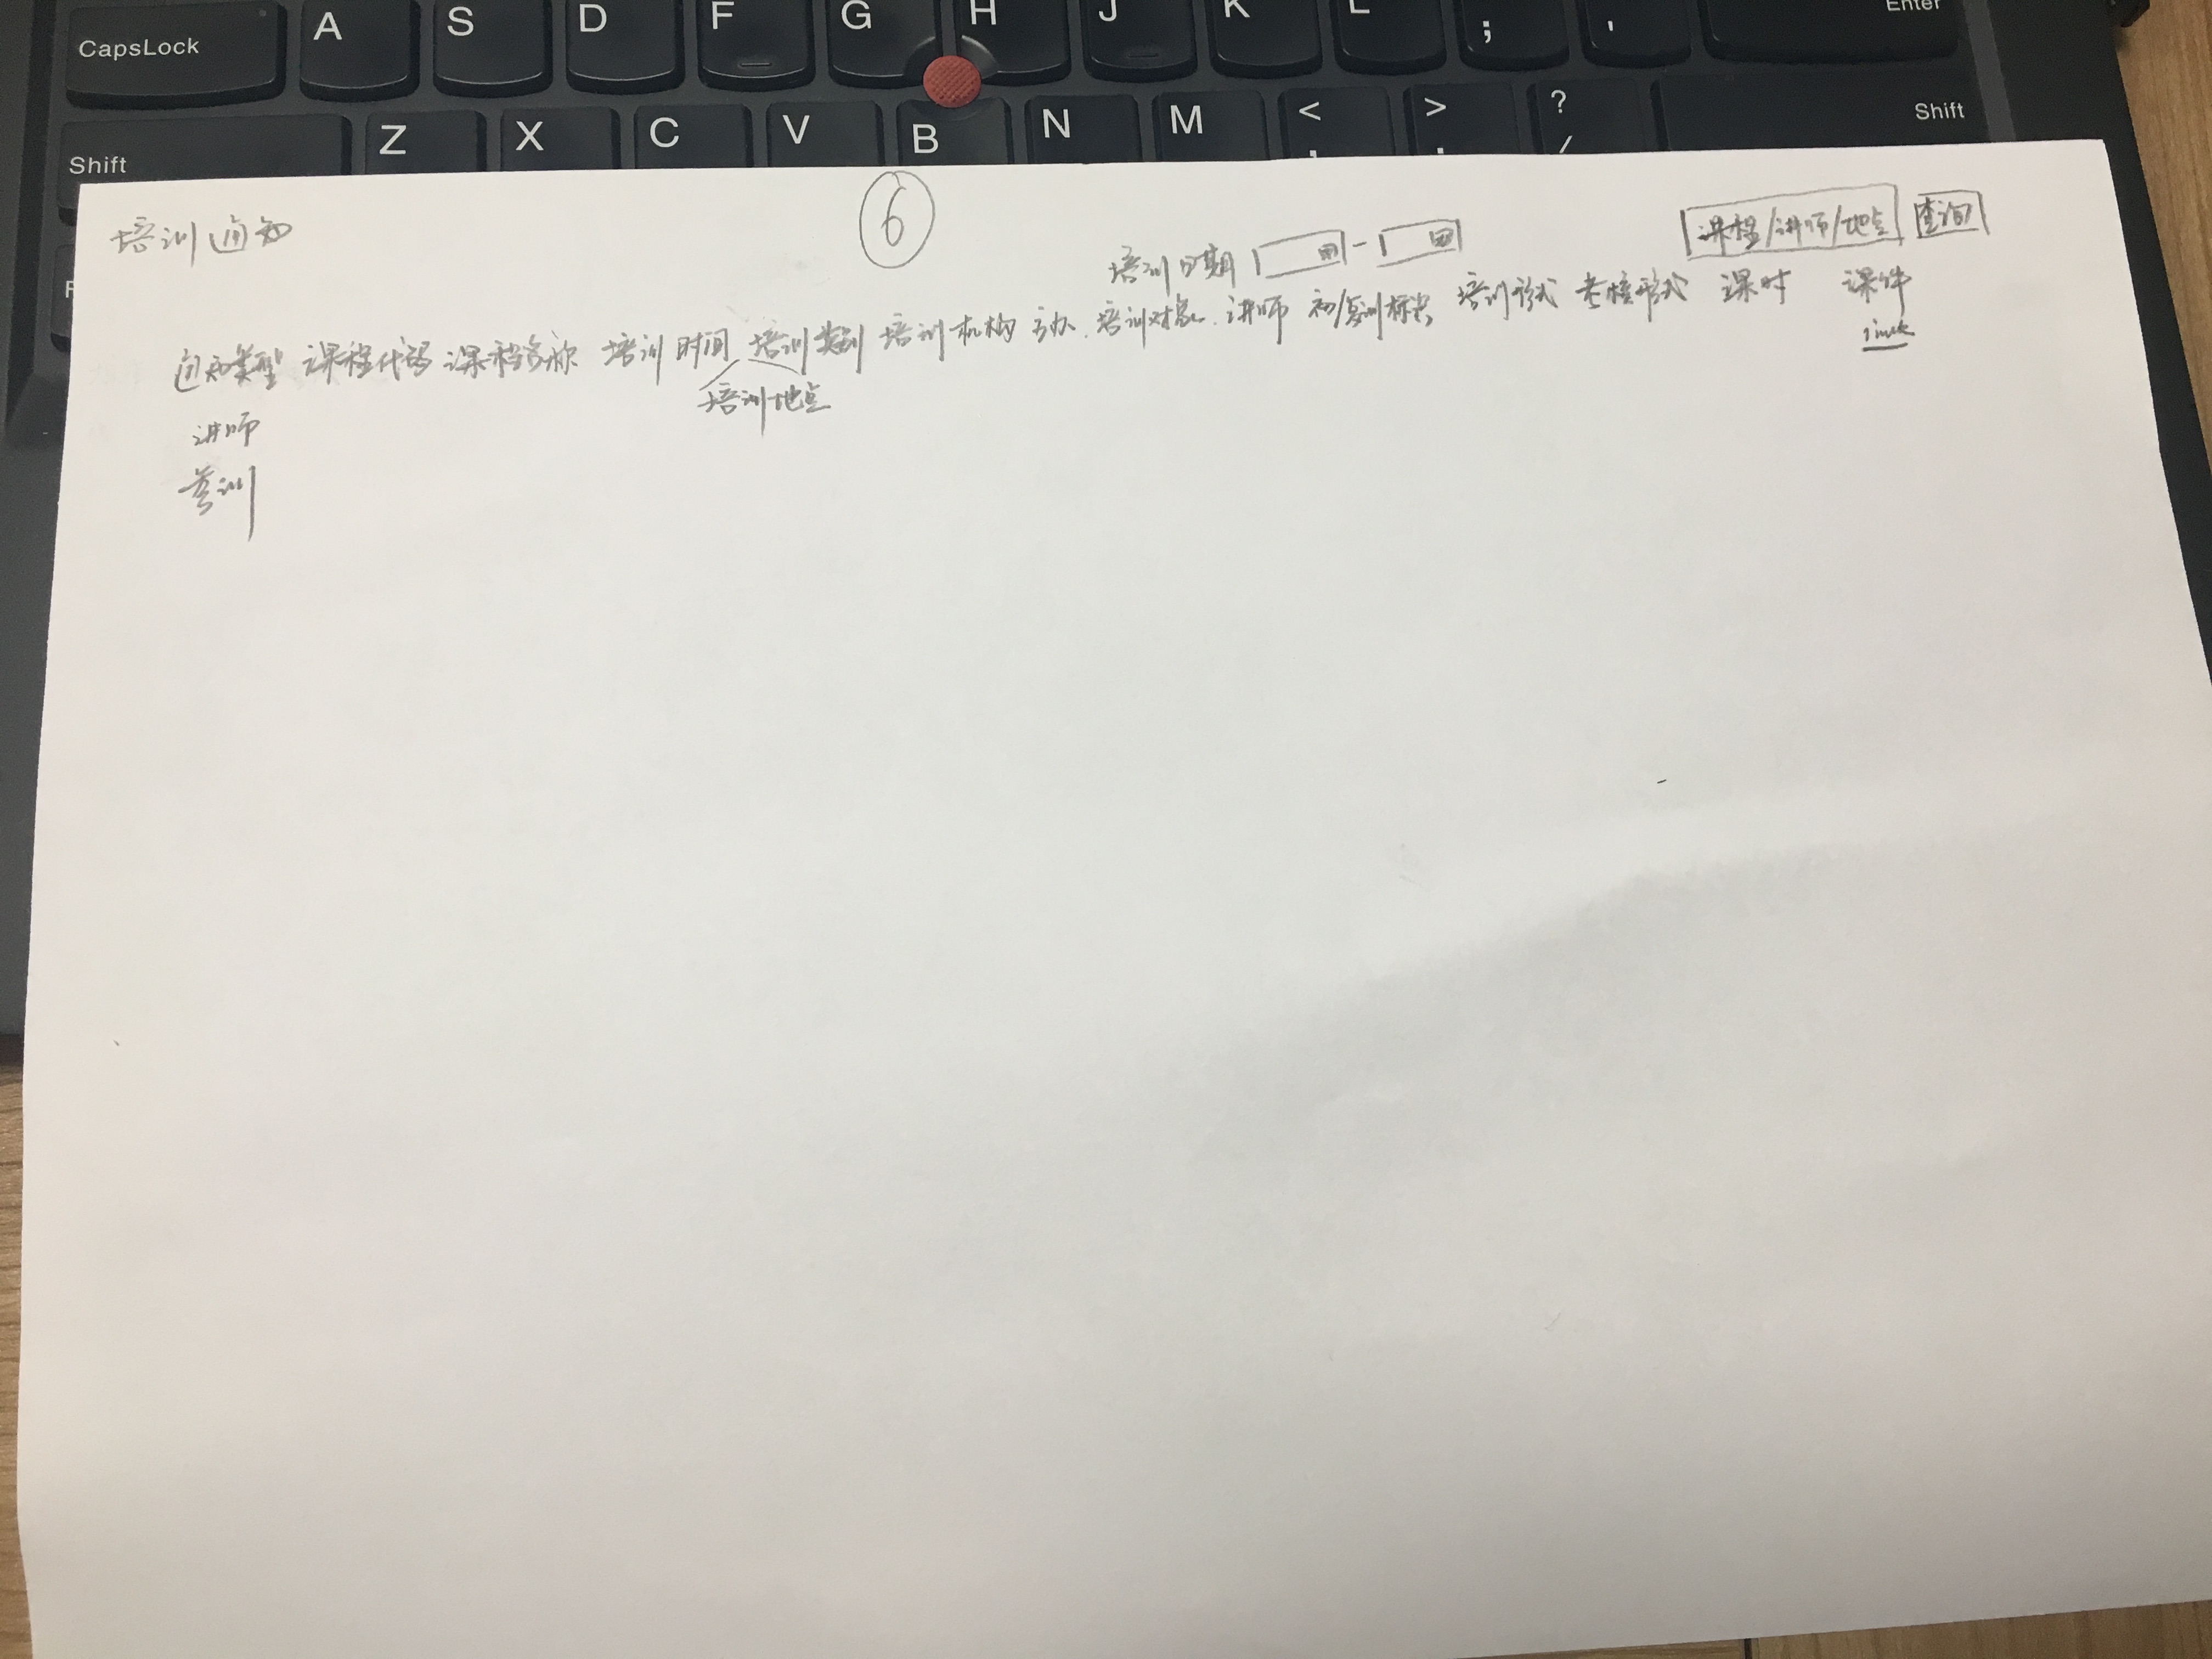 CapsLock A S D F G H J K L ; ' Enter
Shift Z X C V B N M < , > . ? / Shift
⑥
培训通知
培训日期 - 课程/讲师/地点 查询
通知类型 课程代码 课程名称 培训时间 培训类别 培训机构 主办 培训对象 讲师 初/复训标识 培训形式 考核形式 课时 课件
link
培训地点
讲师
参训